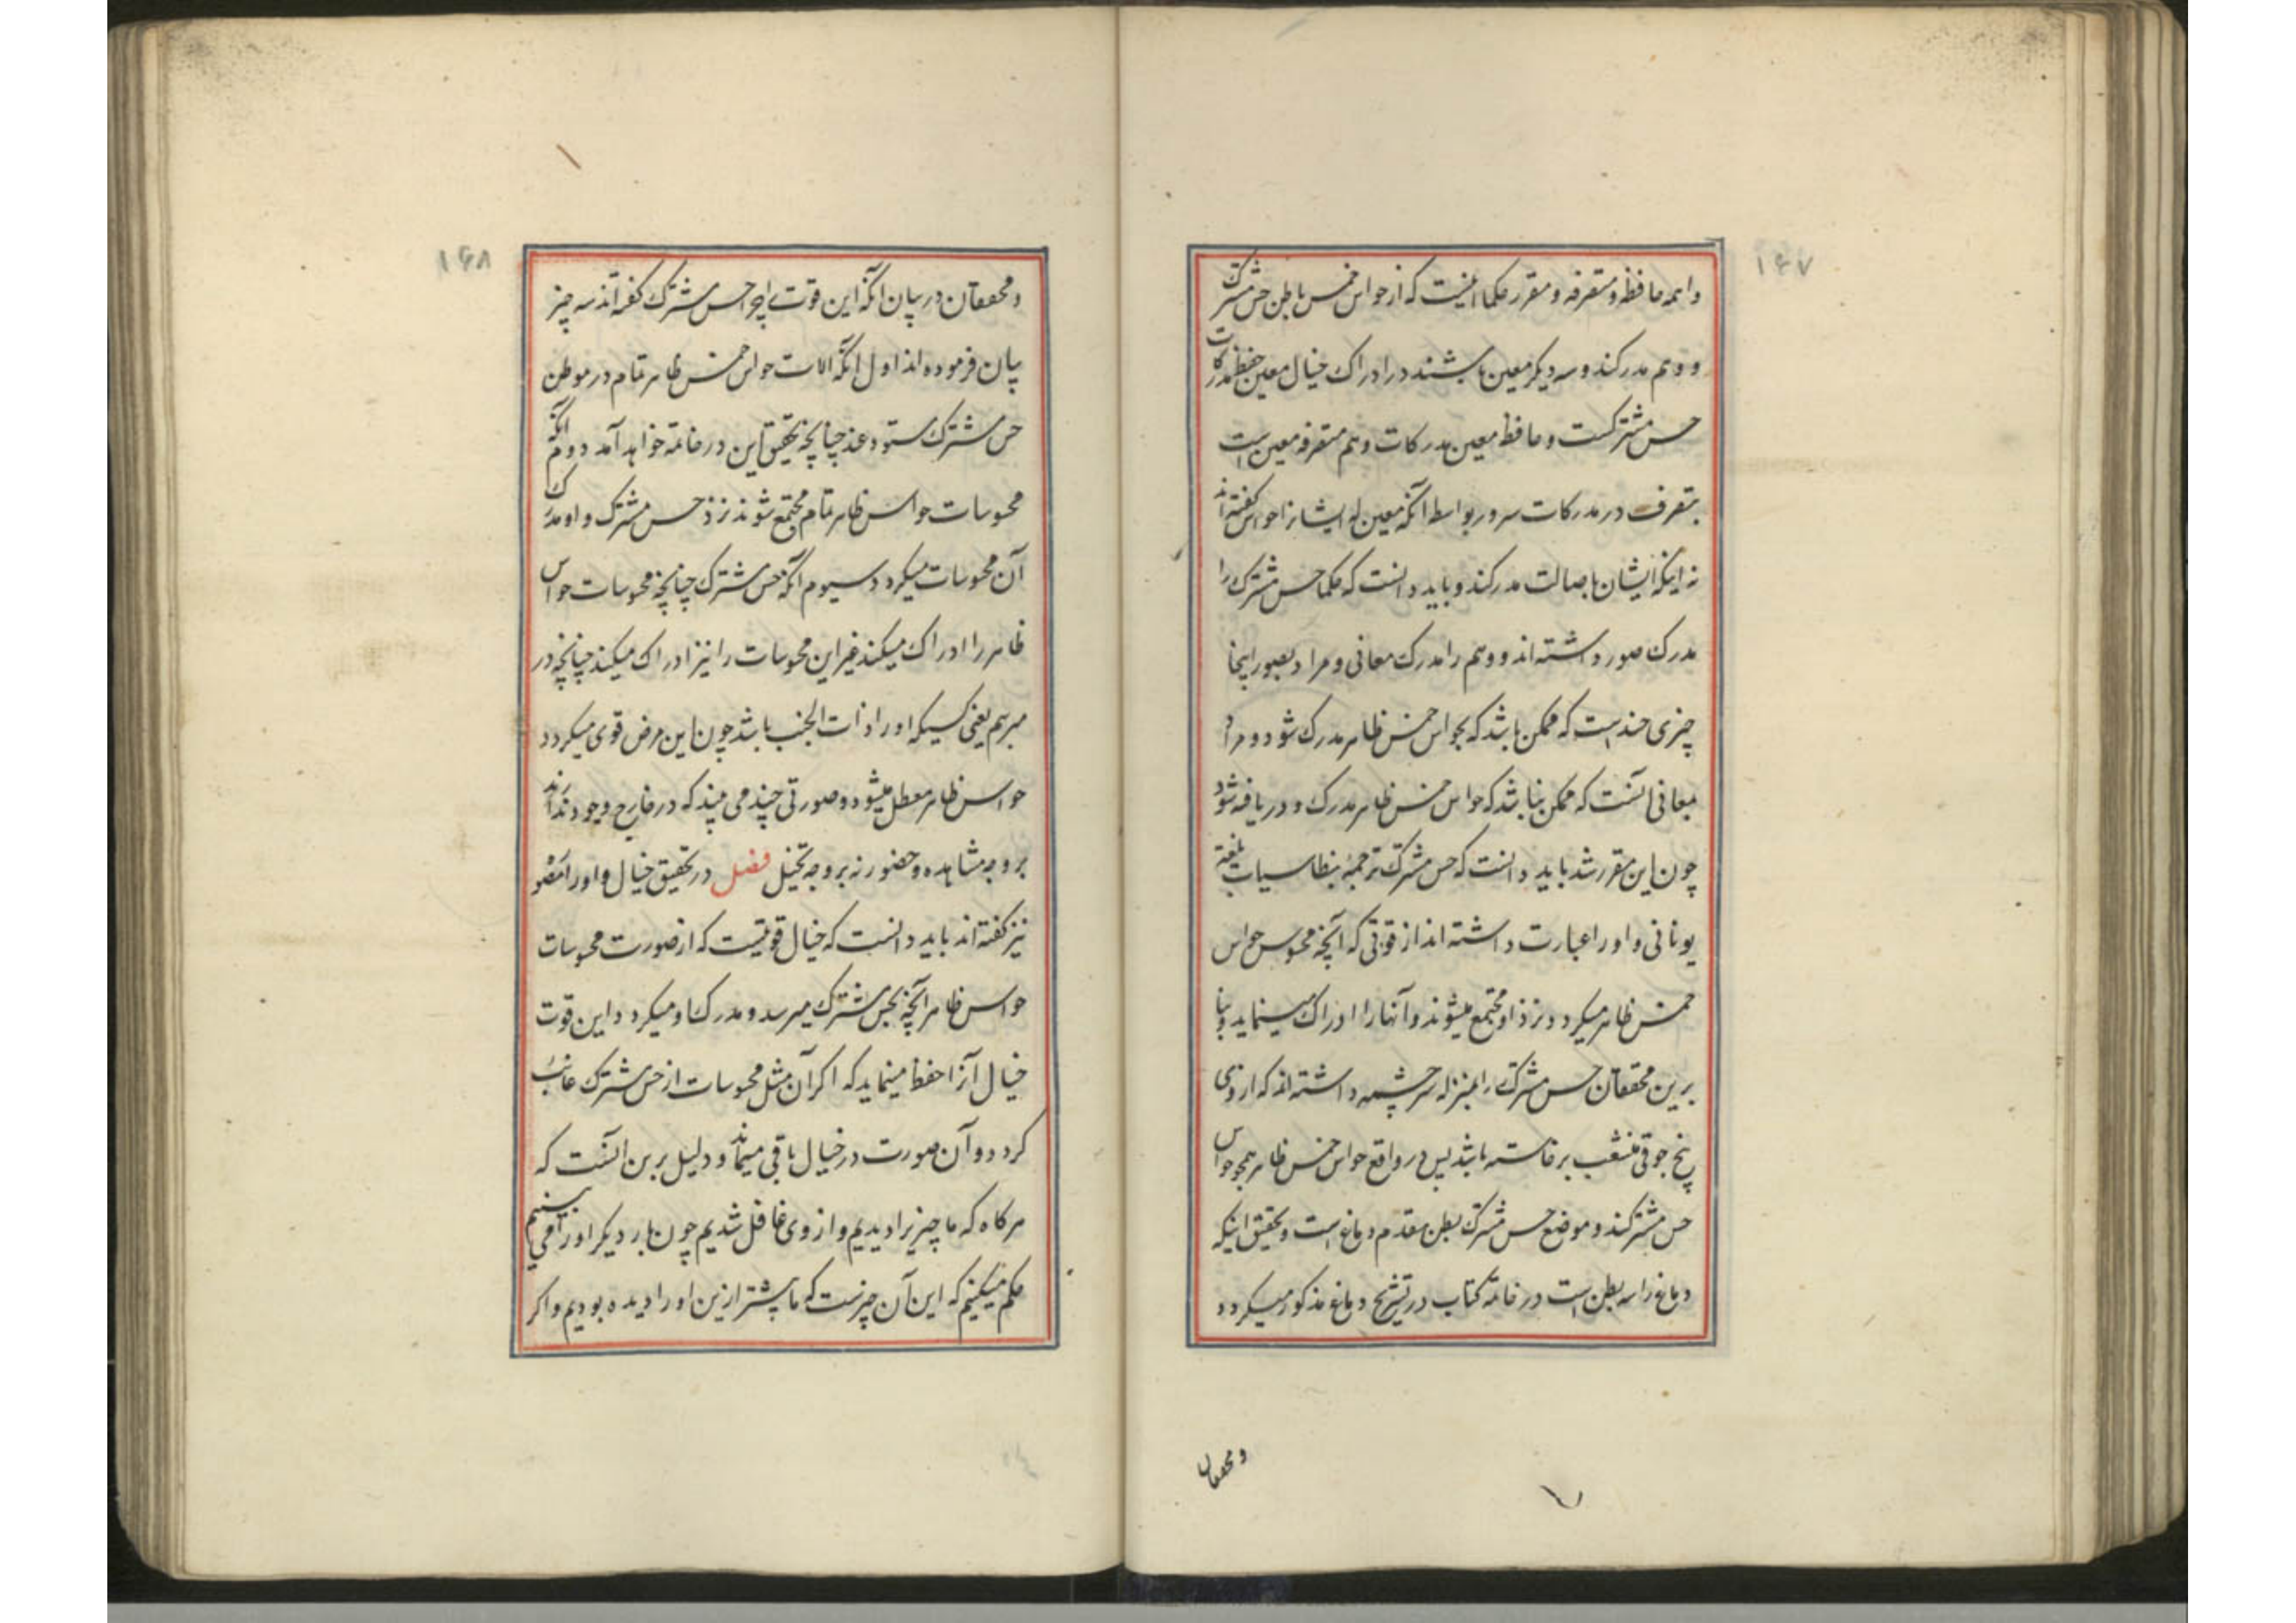 ۱۴۷
واهمه حافظه و متصرفه و مقرر حکما اینست که از حواس خمس باطن حس مشترک
و وهم مدرکند و سه دیکر معین باشند در ادراک خیال معین حفظ مدرکات
حس مشترکست و حافظه معین مدرکات وهم متصرفه معین است
بتصرف در مدرکات هر دو بواسطه آنکه معین اند ایشانرا حواس کفته اند
نه اینکه ایشان باصالت مدرکند و باید دانست که حکما حس مشترک را
مدرک صور داشته اند و وهم را مدرک معانی و مراد بصور اینجا
چیزی چند است که ممکن باشد که بحواس خمس ظاهر مدرک شود و مراد
بمعانی آنست که ممکن نباشد که حواس خمس ظاهر مدرک و دریافته شود
چون این مقرر شد باید دانست که حس مشترک ترجمهٔ بنطاسیاست بلغت
یونانی و او را عبارت داشته اند از قوتی که آنچه محسوس حواس
خمس ظاهر میکردد نزد او مجتمع میشوند و آنها را ادراک مینماید و بنا
برین محققان حس مشترک را بمنزله سرچشمه داشته اند که از وی
پنج جوی منشعب برخاسته باشد پس در واقع حواس خمس ظاهر همچو حواس
حس مشترکند و موضع حس مشترک بطن مقدم دماغ است و تحقیق اینکه
دماغ را سه بطن است در خاتمه کتاب در تشریح دماغ مذکور میکردد
و محققان
۱۴۸
و محققان در بیان آنکه این قوت را چرا حس مشترک کفته اند سه چیز
بیان فرموده اند اول آنکه آلات حواس خمس ظاهر تمام در موطن
حس مشترک ستودعند چنانچه تحقیق این در خاتمه خواهد آمد دوم آنکه
محسوسات حواس ظاهر تمام مجتمع شوند نزد حس مشترک و او مدرک
آن محسوسات میکردد سیوم آنکه حس مشترک چنانچه محسوسات حواس
ظاهر را ادراک میکند غیر این محسوسات را نیز ادراک میکند چنانچه در
مبرسم یعنی کسیکه او را ذات الجنب باشد چون این مرض قوی میکردد
حواس ظاهر معطل میشود و صورتی چند می بیند که در خارج وجود ندارند
بر وجه مشاهده و حضور نه بر وجه تخیل فصل در تحقیق خیال و او را مصوره
نیز کفته اند باید دانست که خیال قوتیست که از صورت محسوسات
حواس ظاهر آنچه بحس مشترک میرسد و مدرک او میکردد این قوت
خیال آنرا حفظ مینماید که اکر آن مثل محسوسات از حس مشترک غائب
کردد و آن صورت در خیال باقی میماند و دلیل برین آنست که
هر کاه که ما چیزیرا دیدیم و از وی غافل شدیم چون بار دیکر او را می بینیم
حکم میکنیم که این آن چیزست که ما پیشتر ازین او را دیده بودیم و اکر